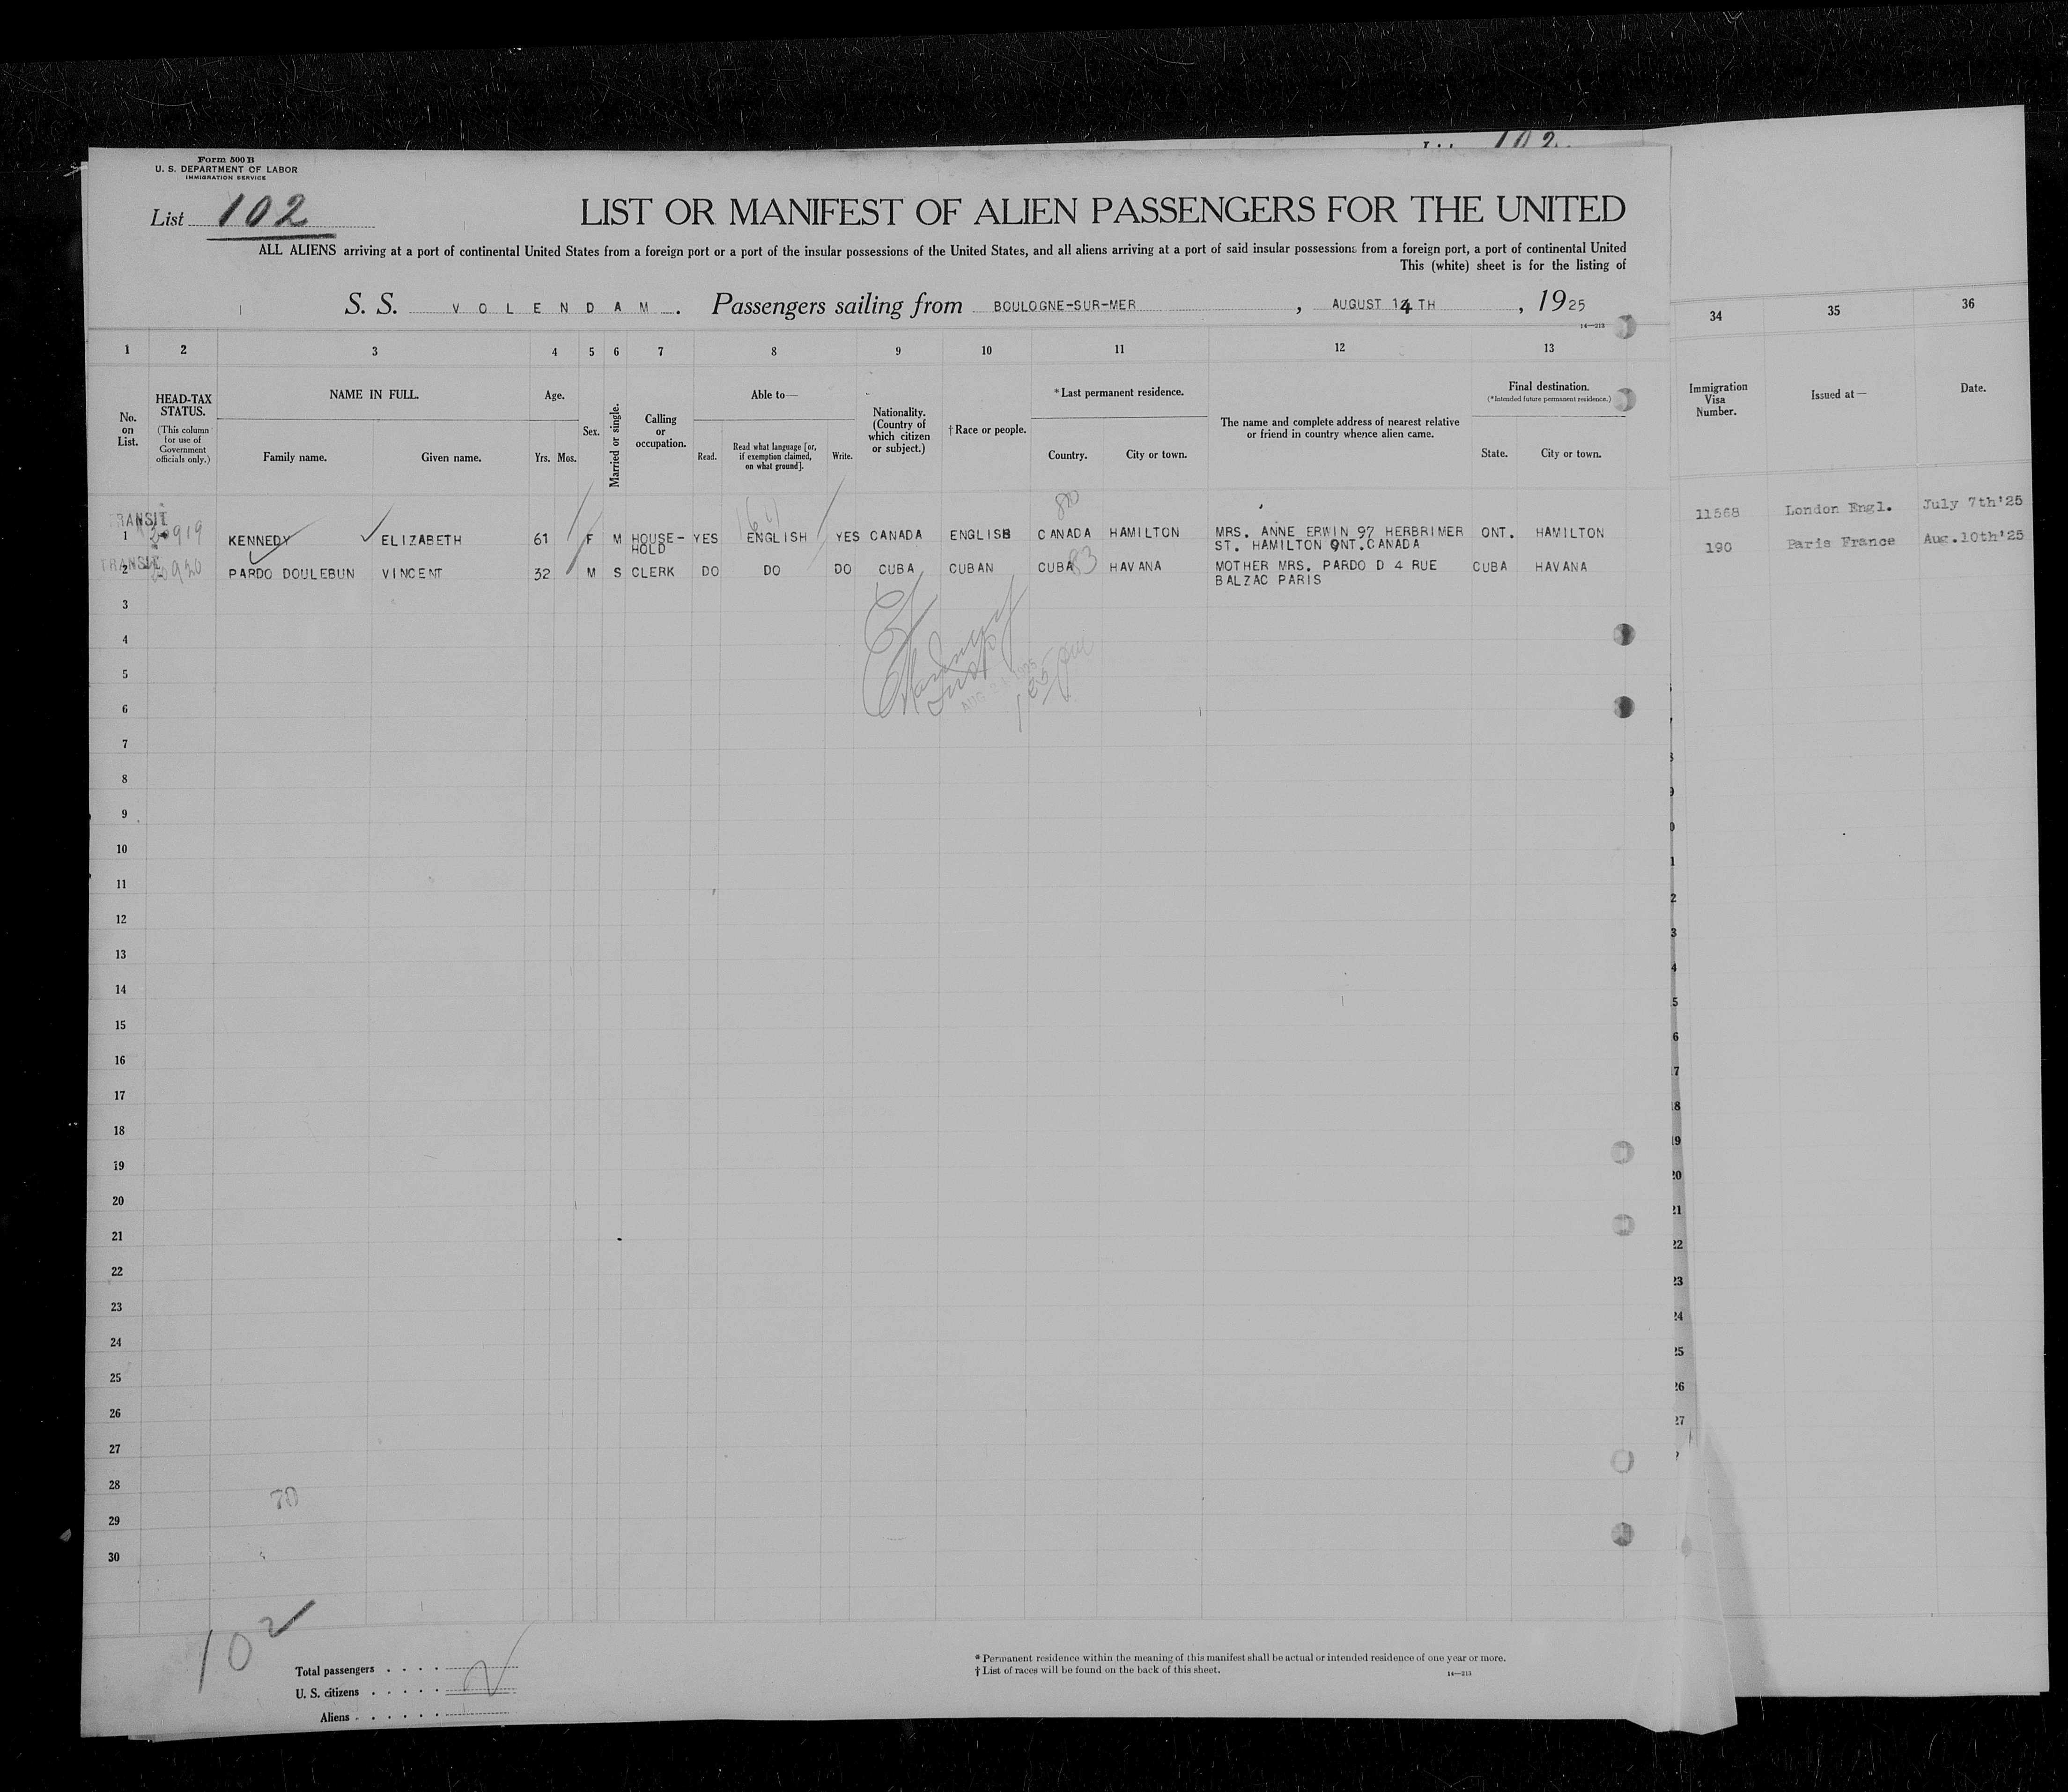 102
Form 500 B
U. S. DEPARTMENT OF LABOR
IMMIGRATION SERVICE
List 102
LIST OR MANIFEST OF ALIEN PASSENGERS FOR THE UNITED
ALL ALIENS arriving at a port of continental United States from a foreign port or a port of the insular possessions of the United States, and all aliens arriving at a port of said insular possessions from a foreign port, a port of continental United
This (white) sheet is for the listing of
S. S. VOLENDAM. Passengers sailing from BOULOGNE-SUR-MER, AUGUST 14 TH, 1925
14—213
1 2 3 4 5 6 7 8 9 10 11 12 13 34 35 36
No. on List.
HEAD-TAX STATUS.
(This column for use of Government officials only.)
NAME IN FULL.
Family name. Given name.
Age.
Yrs. Mos.
Sex.
Married or single.
Calling or occupation.
Able to—
Read. Read what language [or, if exemption claimed, on what ground]. Write.
Nationality. (Country of which citizen or subject.)
†Race or people.
*Last permanent residence.
Country. City or town.
The name and complete address of nearest relative or friend in country whence alien came.
Final destination.
(*Intended future permanent residence.)
State. City or town.
Immigration Visa Number.
Issued at—
Date.
TRANSIT
1 KENNEDY ELIZABETH 61 F M HOUSE-HOLD YES ENGLISH YES CANADA ENGLISH CANADA HAMILTON MRS. ANNE ERWIN 97 HERBRIMER ST. HAMILTON ONT.CANADA ONT. HAMILTON 11568 London Engl. July 7th'25
TRANSIT
2 PARDO DOULEBUN VINCENT 32 M S CLERK DO DO DO CUBA CUBAN CUBA 83 HAVANA MOTHER MRS. PARDO D 4 RUE BALZAC PARIS CUBA HAVANA 190 Paris France Aug.10th'25
3
4
5
6
7
8
9
10
11
12
13
14
15
16
17
18
19
20
21
22
23
24
25
26
27
28
70
29
30
102
Total passengers
U. S. citizens
Aliens
* Permanent residence within the meaning of this manifest shall be actual or intended residence of one year or more.
† List of races will be found on the back of this sheet.
14—213